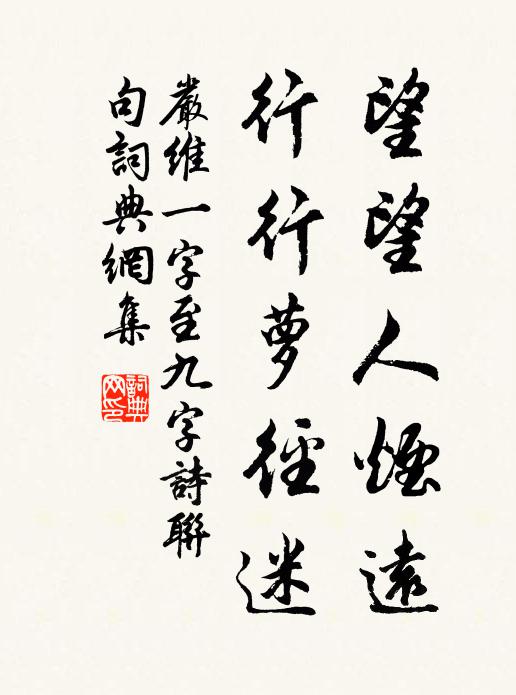 望望人煙遠
行行萝徑迷
嚴維一字至九字詩聯
句詞典網集
詞典
网印